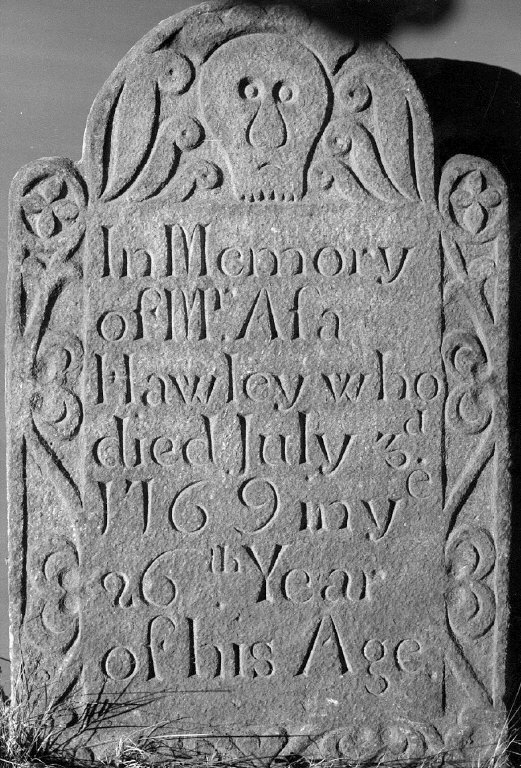 In Memory
of Mr. Aſa
Hawley who
died July 3d.
1769 in ye
26th. Year
of his Age